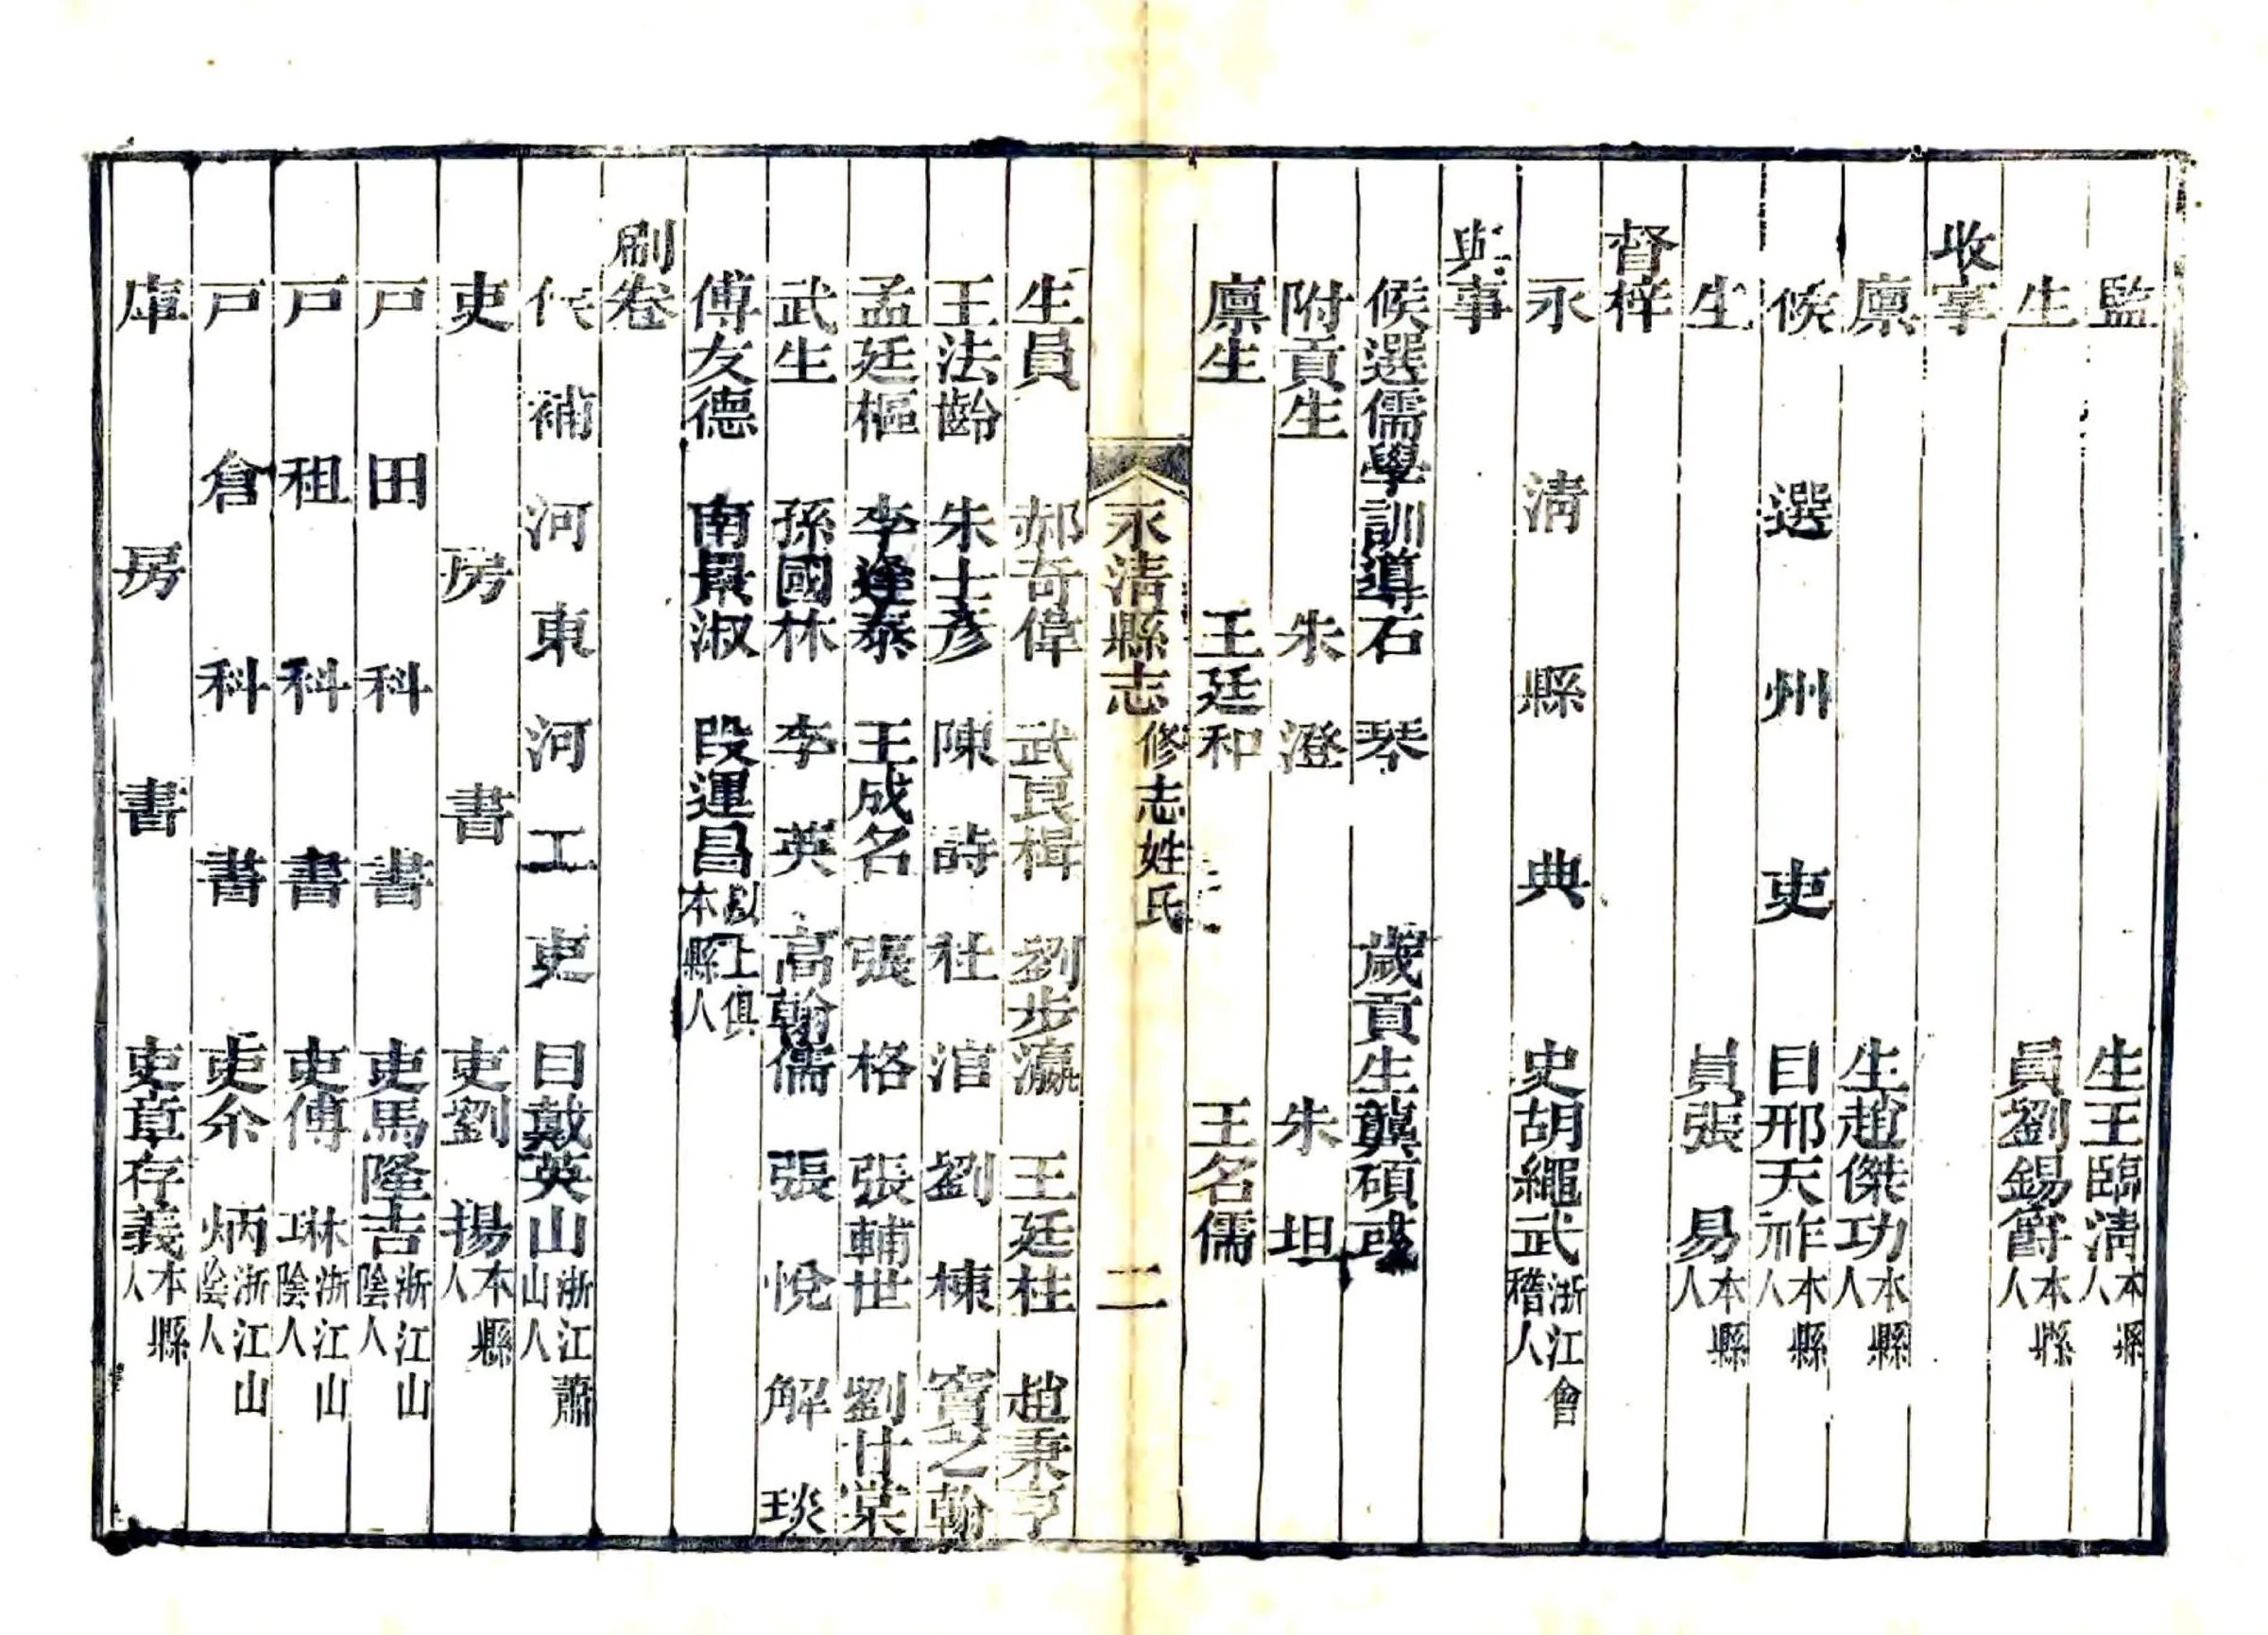 監生王臨清本縣人
生員劉錫爵本縣人
收掌
廪生趙傑功本縣人
候選州吏目邢天祚本縣人
生員張易本縣人
督梓
永清縣典史胡繩武浙江會稽人
與事
候選儒學訓導石琴 歲貢生龔碩
附貢生 朱澄 朱坦
廪生 王廷和 王名儒
永清縣志 修志姓氏 二
生員 郝奇偉 武良楫 劉步瀛 王廷柱 趙秉亨
王法齡 朱士彥 陳詩 杜涫 劉棟 竇之翰
孟廷樞 李逢泰 王成名 張格 張輔世 劉甘棠
武生 孫國林 李英 高翰儒 張悅 解琰
傅友德 南景淑 段運昌以上俱本縣人
刷卷
候補河東河工吏目戴英山浙江蕭山人
吏房書吏劉揚本縣人
戸田科書吏馬隆吉浙江山陰人
戸租科書吏傅琳浙江山陰人
戸倉科書吏余炳浙江山陰人
庫房書吏章存義本縣人